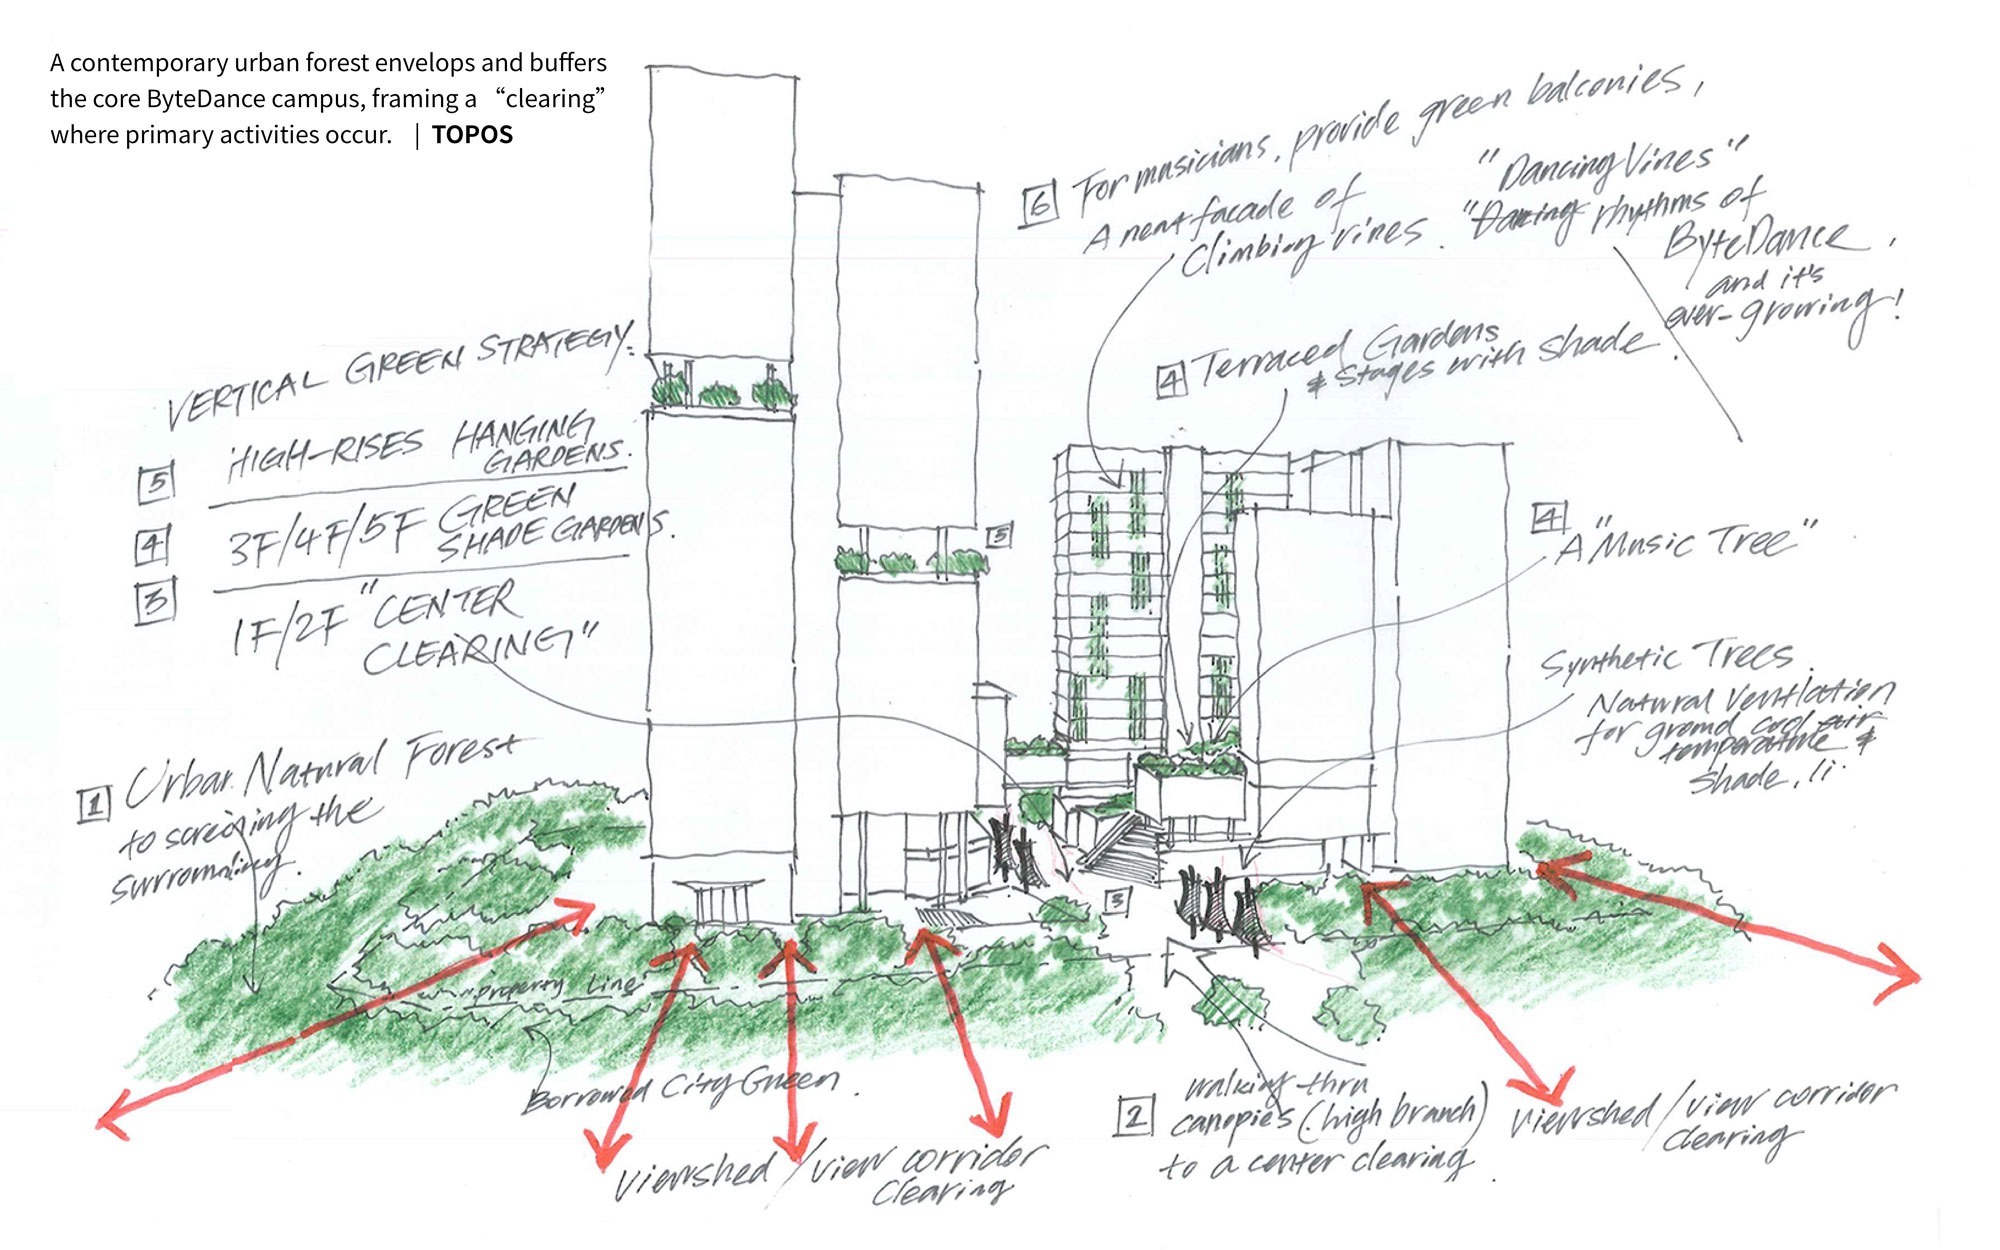 A contemporary urban forest envelops and buffers
the core ByteDance campus, framing a “clearing”
where primary activities occur. | TOPOS
6 For musicians, provide green balconies,
A neat facade of
Climbing vines.
"Dancing Vines"
"Dancing rhythms of
ByteDance,
and it's
ever-growing!
4 Terraced Gardens
& Stages with shade.
VERTICAL GREEN STRATEGY:
5 HIGH-RISES HANGING
GARDENS.
4 3F/4F/5F GREEN
SHADE GARDENS.
3 1F/2F "CENTER
CLEARING"
5
4 A "Music Tree"
Synthetic Trees.
Natural Ventlation
for ground cool air
temperature &
Shade. !!
1 Urban Natural Forest
to screening the
surrounding.
3
property Line
Borrowed City Green.
Viewshed / view corridor
Clearing
2 walking thru
canopies (high branch)
to a center clearing.
Viewshed / view corridor
Clearing